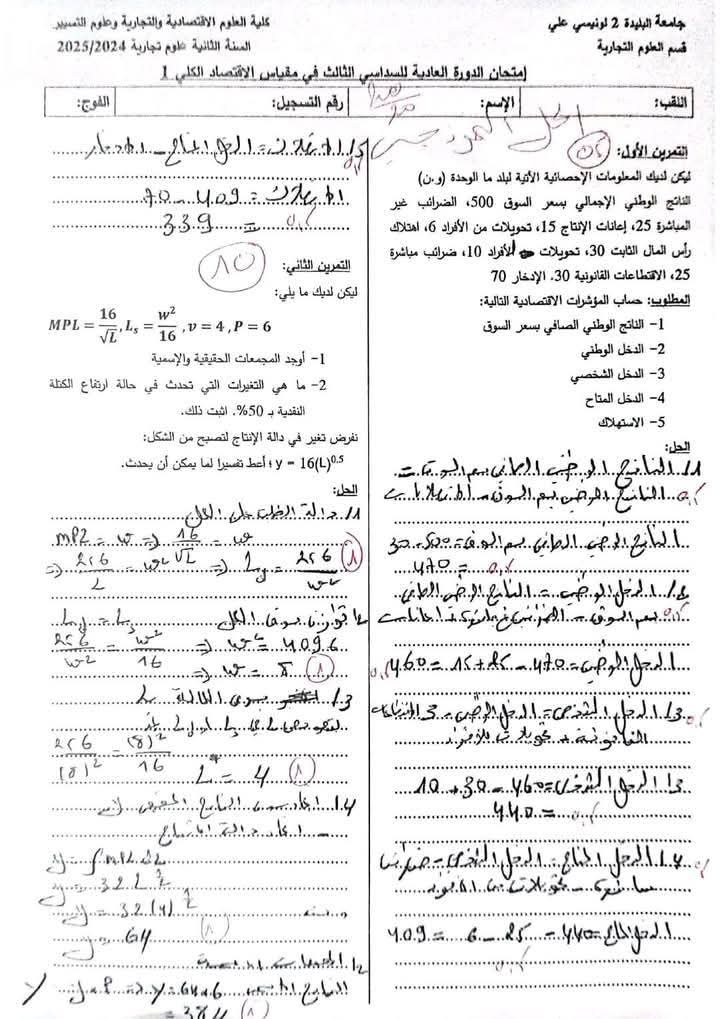 جامعة البليدة 2 لونيسي علي
كلية العلوم الاقتصادية والتجارية وعلوم التسيير
قسم العلوم التجارية
السنة الثانية علوم تجارية 2025/2024
إمتحان الدورة العادية للسداسي الثالث في مقياس الاقتصاد الكلي 1
اللقب:
الإسم:
رقم التسجيل:
الفوج:
الحل النموذجي
التمرين الأول:
ليكن لديك المعلومات الإحصائية الأتية لبلد ما الوحدة (و.ن)
الناتج الوطني الإجمالي بسعر السوق 500، الضرائب غير
المباشرة 25، إعانات الإنتاج 15، تحويلات من الأفراد 6، اهتلاك
رأس المال الثابت 30، تحويلات الأفراد 10، ضرائب مباشرة
25، الاقتطاعات القانونية 30. الإدخار 70
المطلوب: حساب المؤشرات الاقتصادية التالية:
1- الناتج الوطني الصافي بسعر السوق
2- الدخل الوطني
3- الدخل الشخصي
4- الدخل المتاح
5- الاستهلاك
الحل:
1/ الناتج الوطني الصافي بسعر السوق =
الناتج الوطني بسعر السوق - الاهتلاكات
الناتج الوطني الصافي بسعر السوق = 500 - 30
= 470
2/ الدخل الوطني = الناتج الوطني الصافي
بسعر السوق - الضرائب غير المباشرة + اعانات
الدخل الوطني = 470 - 25 + 15 = 460
3/ الدخل الشخصي = الدخل الوطني - الاقتطاعات
القانونية + تحويلات للأفراد
3/ الدخل الشخصي = 460 - 30 + 10
= 440
4/ الدخل المتاح = الدخل الشخصي - ضرائب
مباشرة - تحويلات من الأفراد
الدخل المتاح = 440 - 25 - 6 = 409
5/ الاستهلاك = الدخل المتاح - الادخار
الاستهلاك = 409 - 70
= 339
التمرين الثاني: 10
ليكن لديك ما يلي:
MPL = 16/√L , Ls = w²/16 , v = 4 , P = 6
1- أوجد المجمعات الحقيقية والإسمية
2- ما هي التغيرات التي تحدث في حالة ارتفاع الكتلة
النقدية بـ 50%. اثبت ذلك.
نفرض تغير في دالة الإنتاج لتصبح من الشكل:
y = 16(L)^0.5 ؛ أعط تفسيرا لما يمكن أن يحدث.
الحل:
1/ دالة الطلب على العمل
MPL = w => 16/√L = w
=> 256/L = w² => Ld = 256/w² 1
2/ توازن سوق العمل Ld = Ls
256/w² = w²/16 => w⁴ = 4096
=> w = 8 1
3/ مستوى العمالة L
نعوض في Ls أو Ld
256/(8)² = (8)²/16
L* = 4 1
4/ ايجاد مستوى الناتج الحقيقي
- ايجاد دالة الإنتاج
y = ∫MPL dL
y = 32 L^½
y = 32 (4)^½
y = 64 1
y.P = 64 x 6
= 384 1